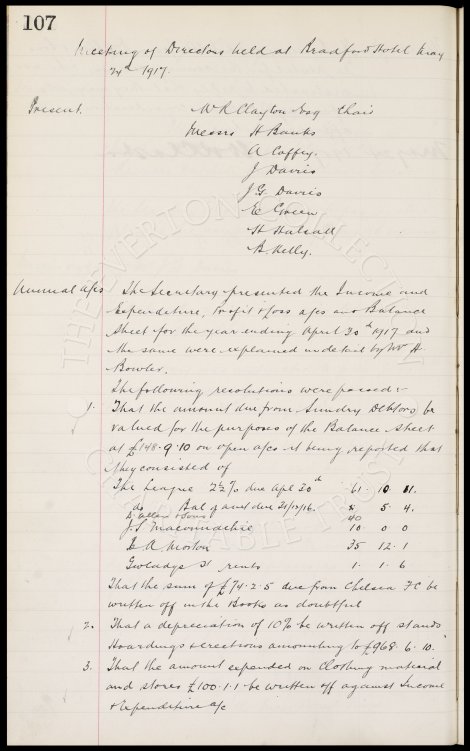 107
Meeting of Directors held at Bradford Hotel May
24th 1917.
Present. W R Clayton Esq Chair
Messrs H Banks
A Coffey.
J Davies
J G. Davies
E Green
H Halsall
B. Kelly.
Annual a/cs The Secretary presented the Income and
Expenditure, Profit & Loss a/cs and Balance
Sheet for the year ending April 30th 1917 and
the same were explained in detail by Mr H.
Bowler.
The following resolutions were passed:-
1. That the amount due from Sundry Debtors be
valued for the purposes of the Balance Sheet
at £148.9.10 on open a/cs it being reported that
they consisted of
The League 2½% due Apl 30th 61. 10 11.
do Bal of due 31/12/16. 5 4.
40
J. S. Maconnachie 10 0 0
E A Morton 35 12. 1
Gwladys St rents 1. 1. 6
That the sum of £74.2.5 due from Chelsea FC be
written off in the Books as doubtful
2. That a depreciation of 10% be written off stands
Hoardings & erections amounting to £968.6.10.
3. That the amount expended on Clothing material
and stores £100.1.1 be written off against Income
& Expenditure a/c
THE EVERTON COLLECTION
CHARITABLE TRUST